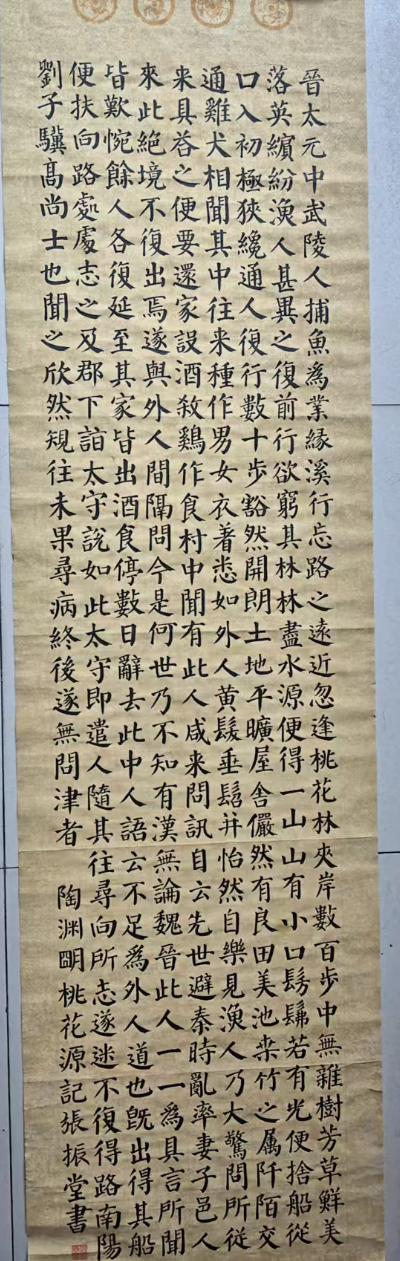 晉太元中武陵人捕魚為業緣溪行忘路之遠近忽逢桃花林夾岸數百步中無雜樹芳草鮮美
落英繽紛漁人甚異之復前行欲窮其林林盡水源便得一山山有小口髣髴若有光便捨船從
口入初極狹纔通人復行數十步豁然開朗土地平曠屋舍儼然有良田美池桒竹之属阡陌交
通雞犬相聞其中往来種作男女衣著悉如外人黄髮垂髫并怡然自樂見漁人乃大驚問所從
来具荅之便要還家設酒殺鷄作食村中聞有此人咸来問訊自云先世避秦時亂率妻子邑人
來此絕境不復出焉遂與外人間隔問今是何世乃不知有漢無論魏晉此人一一為具言所聞
皆歎惋餘人各復延至其家皆出酒食停數日辭去此中人語云不足為外人道也既出得其船
便扶向路處處志之及郡下詣太守說如此太守即遣人隨其往尋向所志遂迷不復得路南陽
劉子驥髙尚士也聞之欣然規往未果尋病終後遂無問津者 陶渊明桃花源記張振堂書